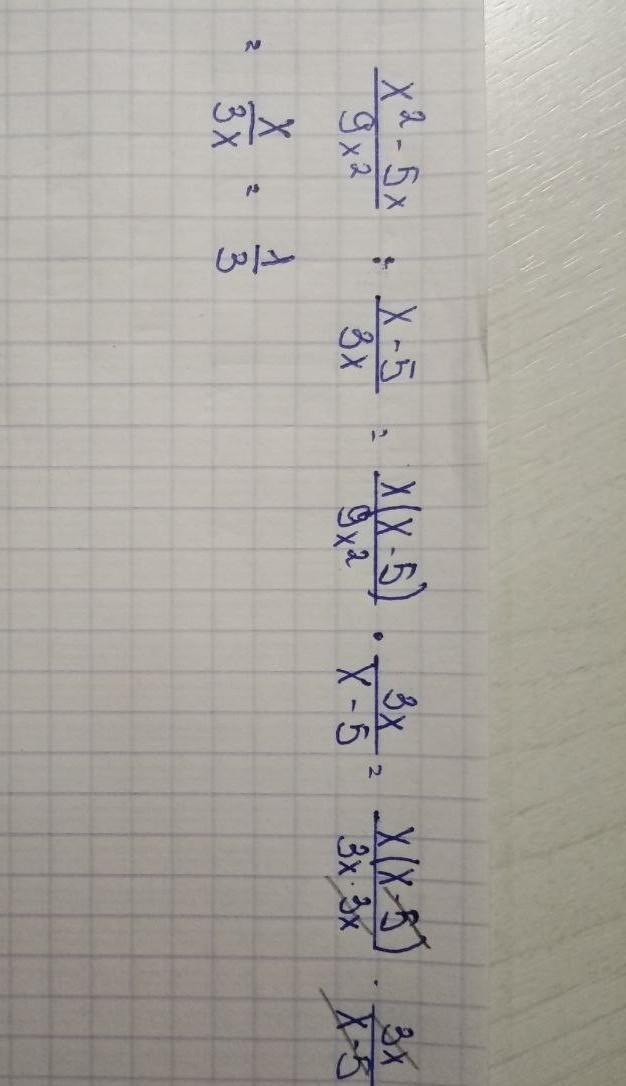 x² - 5x / 9x² : x - 5 / 3x = x(x - 5) / 9x² · 3x / x - 5 = x(x - 5) / 3x · 3x · 3x / x - 5
= x / 3x = 1 / 3